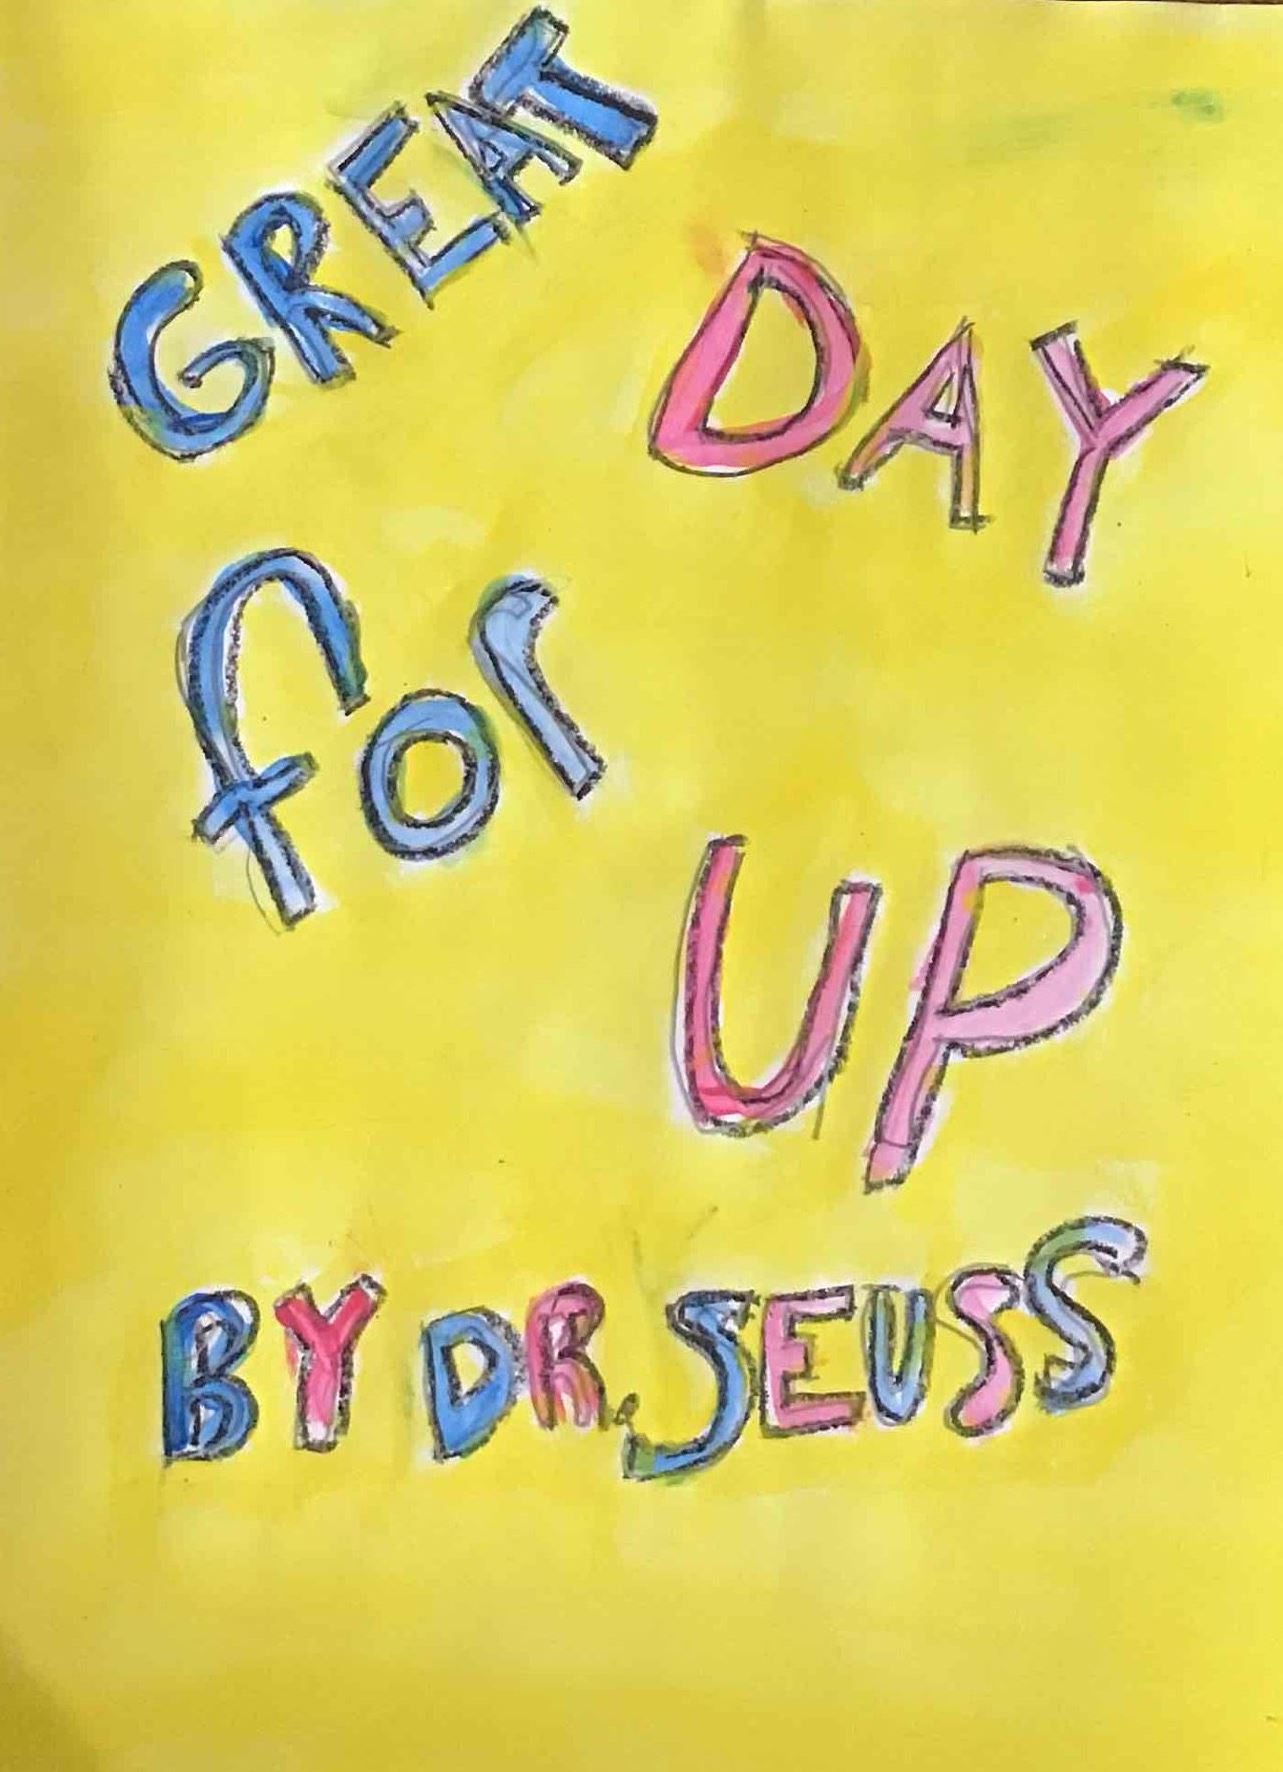 GREAT
DAY
for
UP
BY DR. SEUSS